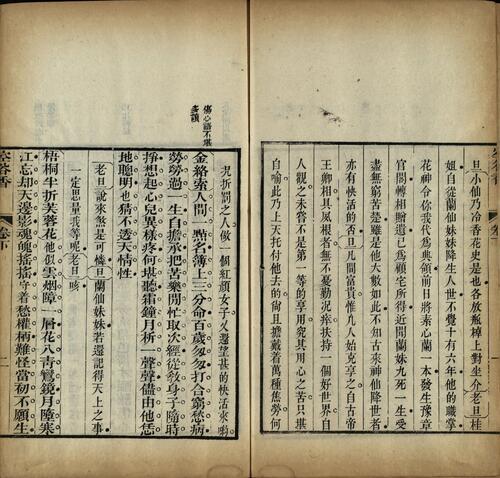 旦小仙乃冷香花史是也各放瓶樽上對坐介老旦桂
姐自從蘭仙妹妹降生人世不覺十有六年他的職掌
花神令你我代為典領前日將素心蘭一本發生豫章
官閤轉相贈遺已為顧宅所得近聞蘭妹九死一生受
盡無窮苦楚雖是他大數如此不知古來神仙降世者
亦有快活的否旦凡間富貴惟凡人始克享之自古帝
王卿相具夙根者無不憂勤況瘁扶持一個好世界自
人觀之未嘗不是第一等的享用究其用心之苦只堪
自喻此乃上天托付他去的尚且擔戴着萬種焦勞何
傷心語不堪
多讀
況折罰之人做一個紅顏女子又還望甚的快活來喲
金絡索人間一點名簿上三分命百歲匆匆打合窮愁病
勞勞過一生自擔承把苦樂閒忙取次經從教身子隨時
掙想起心兒異樣疼何堪聽霜鐘月柝一聲聲儘由他恁
地聰明也猜不透天情性
老旦說來煞是可憐旦蘭仙妹妹若還記得天上之事
一定思量我等呢老旦咳
梧桐半折芙蓉花他似雲烟障一層花八青鸞鏡月墮寒
江忘却天邊影魂魄搖搖守着愁權柄難怪當初不願生
空谷香 卷下